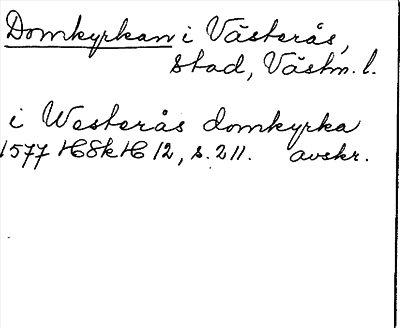 Domkyrkan i Västerås,
stad, Västm. l.
i Westerås domkyrka
1577 HSkH 12, s. 211. avskr.